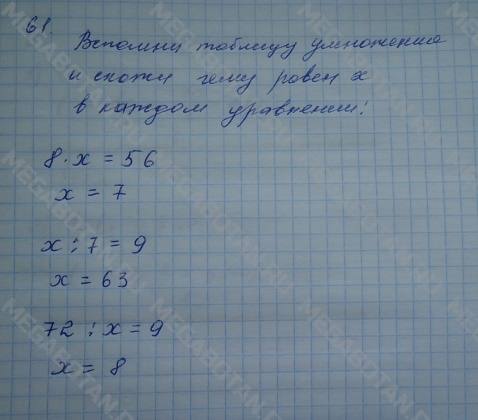 61
Вспомни таблицу умножения
и скажи чему равен x
в каждом уравнении:
8 · x = 56
x = 7
x : 7 = 9
x = 63
72 : x = 9
x = 8